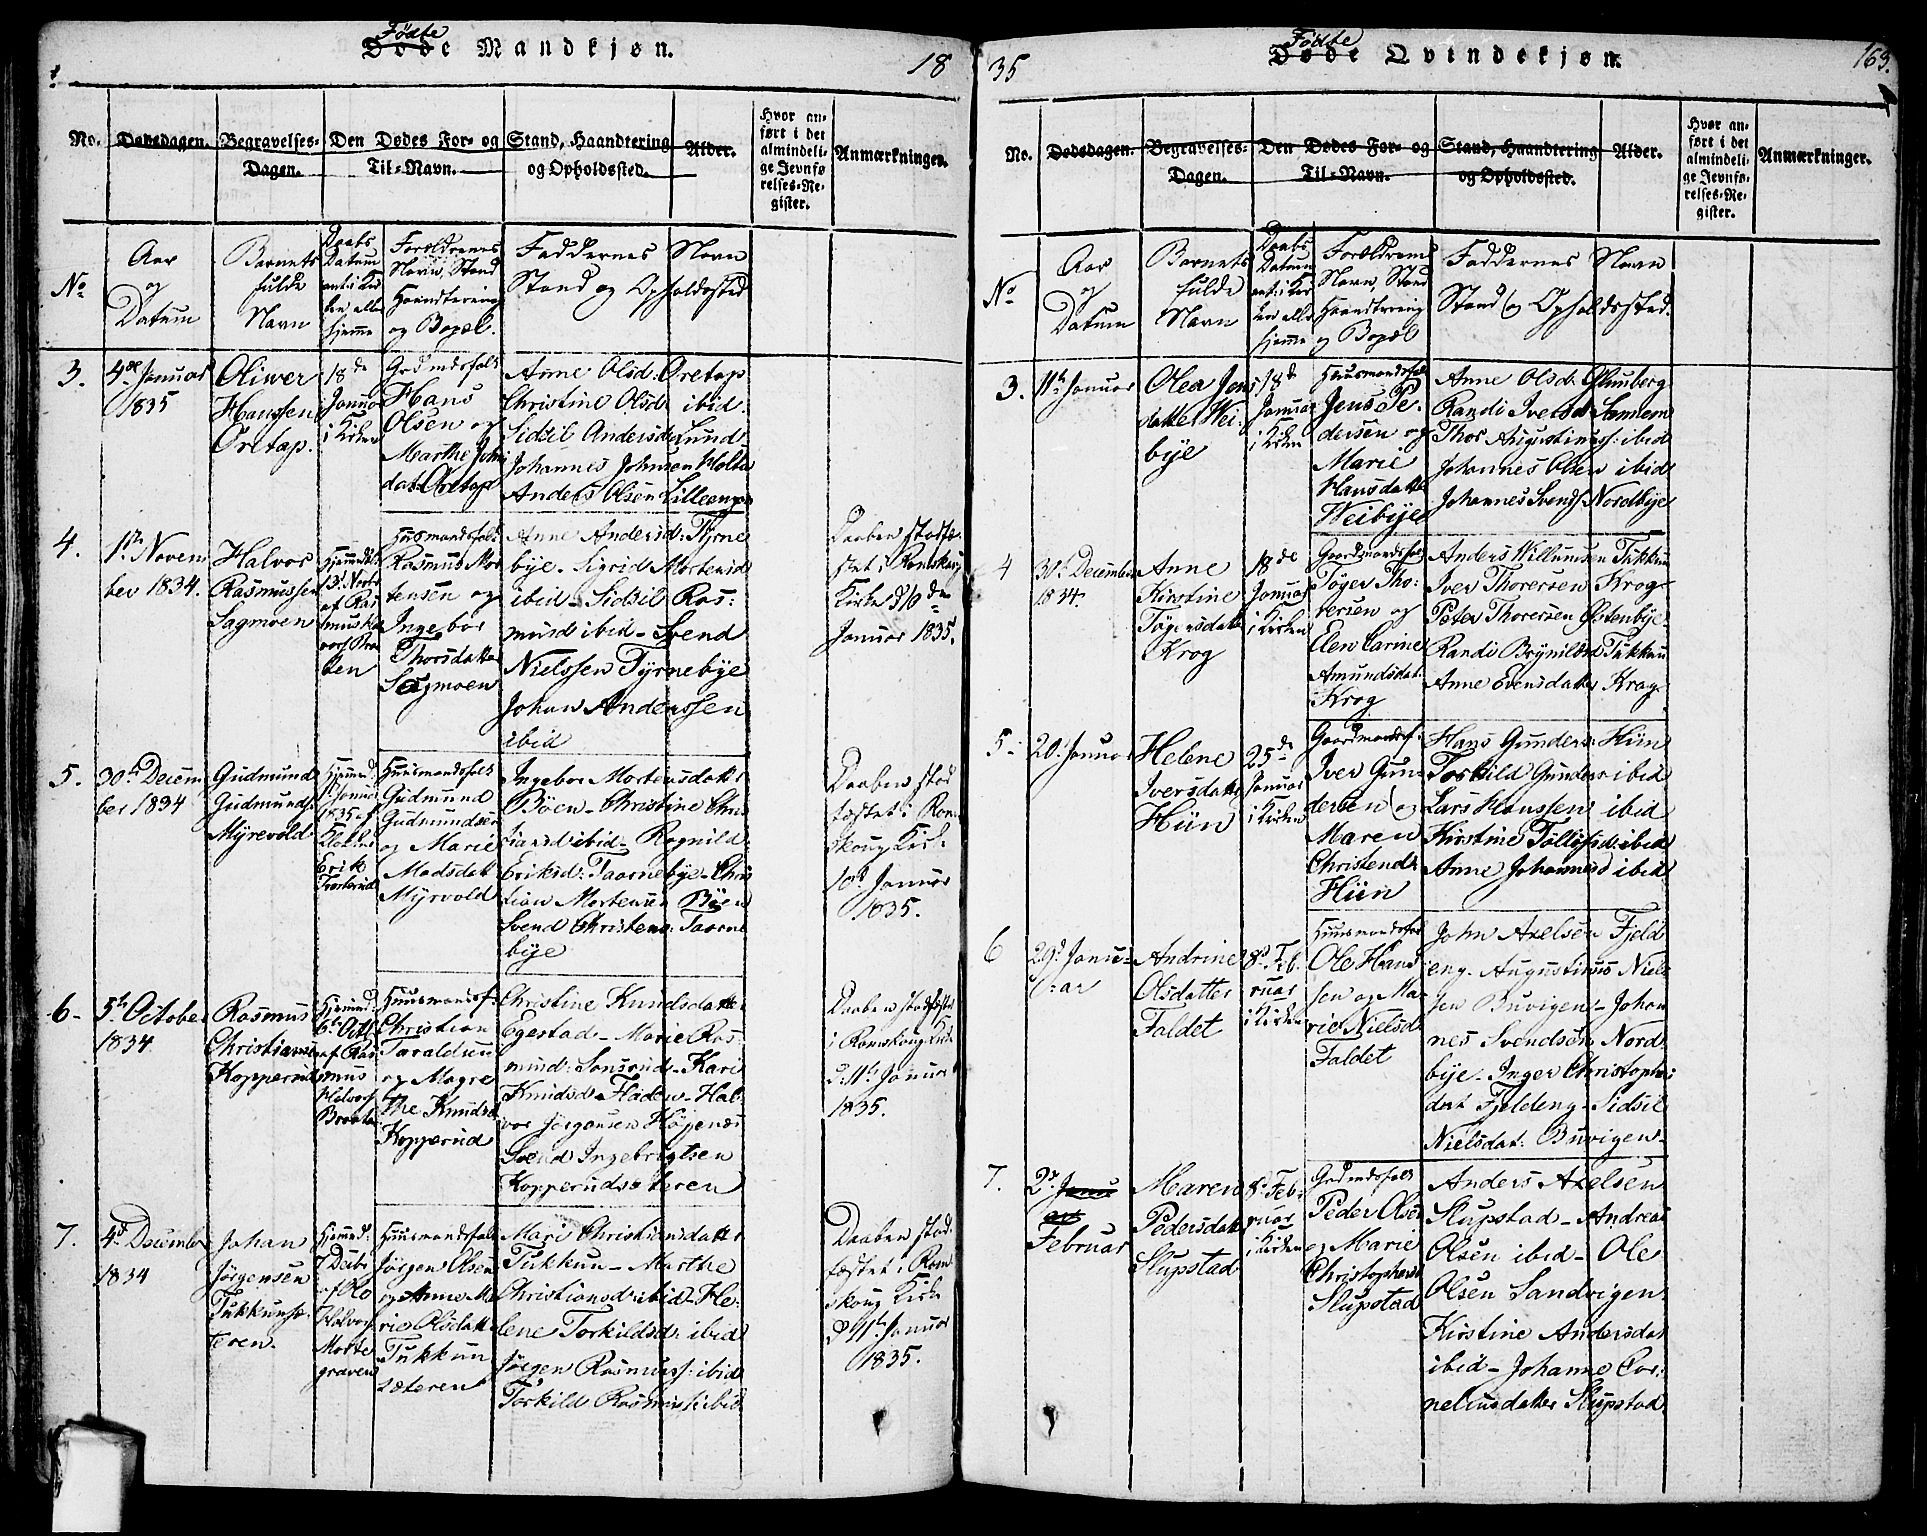 Fødte
Døde Mandkjøn.
18
No.
Dødsdagen.
Begravelses-
Dagen.
Den Dødes For- og
Til-Navn.
Stand, Haandtering
og Opholdssted.
Alder.
Hvor an-
ført i det
almindeli-
ge Jevnfø-
relses-Re-
gister.
Anmærkninger.
No
Aar
og
Datum
Barnets
fulde
Navn
Daabs
Datum
enten i Kir
ken eller
hjemme
Forældrenes
Navn, Stand
Haandtering
og Bopæl.
Faddernes Navn
Stand og Opholdssted
3.
4de Januar
1835
Oliver
Hanssen
Oretap.
18de
Januar
i Kirken
Grdmdsfolk
Hans
Olsen og
Marthe Johns
dat. Oretap
Anne Olsd: Oretap
Christine Olsd: ibid.
Sidsil Andersd: Lund
Johannes Johnsen Holte
Anders Olsen Lilleengen
4.
1te Novem
ber 1834.
Halvor
Rasmussen
Sagmoen
Huusmandsfolk
Rasmus Mor
tensen og
Ingebor
Thorsdatter
Sagmoen
Anne Andersd: Tyrne
bye. Sigrid Mortensd
ibid - Sidsil Ras:
musd ibid - Svend
Nielssen Tyrnebye
Johan Anderssen
ibid
Daaben stadfæ
stet i Romskoug
Kirke d 10de
Januar 1835.
5.
30te Decem
ber 1834
Gudmund
Gudmunds:
Myrevold
Huusmandsfolk
Gudmund
Gudmundsen
og Marie
Madsdat
Myrvold
Ingebor Mortensdatter
Böen - Christine Chri
stiansd ibid - Rognild
Eriksd: Taarnebye - Chris
tian Mortensen Böen
Svend Christens: Taarne
bye
Daaben stad
fæstet i Rom
skoug Kirk
10d Januar
1835.
6-
5te October
1834
Rasmus
Christians:
Kopperud
Hjemmed:
6te Octb
af Ras
mus
Halvors
Braaten
Huusmandsf:
Christian
Taraldsen
og Magre
the Knudsd
Kopperud
Christine Knudsdatter
Egestad - Marie Ras
musd: Sonsrud - Kari
Knudsd: Floden - Hal
vor Jörgensen Höjenæs
Svend Ingebrigtsen
Kopperudsæteren
Daaben stadfæstet
i Romskoug Kirke
d: 11te Januar
1835.
7.
4d December
1834
Johan
Jörgensen
Tukkunsæ-
teren.
Huusmandsfolk
Jörgen Olsen
og Anne Ma
rie Olsdatter
Tukkun
sæteren
Mari Christiansdatter
Tukkun - Marthe
Christiansd: ibid - He
lene Torkildsd: ibid
Jörgen Rasmuss: ibid
Torkild Rasmuss: ibid
Daaben stad
fæstet i Rom
skoug Kirke
d 11te Januar
1835.
35
Fødte
Døde Qvindekjøn.
163.
No.
Dødsdagen.
Begravelses-
Dagen.
Den Dødes For- og
Til-Navn.
Stand, Haandtering
og Opholdssted.
Alder.
Hvor an-
ført i det
almindeli-
ge Jevnfø-
relses-Re-
gister.
Anmærkninger.
No
Aar
og
Datum
Barnets
fulde
Navn
Daabs
Datum
enten i Kir
ken eller
hjemme
Forældrenes
Navn, Stand
Haandtering
og Bopæl
Faddernes Navn
Stand og Opholdssted.
3.
11te Januar
Olea Jens
datter Wei-
bye
18d
Januar
i Kirken
Huusmandsfolk
Jens Pe-
dersen og
Marie
Hansdatter
Weibye
Anne Olsd: Glunberg
Randi Iversd Sannem
Thor Augustinuss: ibid
Johannes Olsen ibid
Johannes Svends Nordbye
4
30te December
1834.
Anne
Kirstine
Tögersdatter
Krog
18de
Januar
i Kirken
Gaardmandsfolk
Töger Tho-
rersen og
Elen Carine
Amundsdat.
Krog
Anders Willumsen Tukkun
Iver Thorersen Krog
Peter Thorersen Østenbye
Randi Brynildsd Tukkun
Anne Evensdatter Krog
5-
20. Januar
Helene
Iversdatter
Hün
25de
Januar
i Kirken
Gaardmandsf:
Iver Gun-
dersen og
Maren
Christensd:
Hün
Hans Gunders: Hün
Torkild Gunders: ibid
Lars Hanssen ibid
Kirstine Tollefsd: ibid
Anne Johannesd ibid
6
29d Janu-
ar
Andrine
Olsdatter
Faldet
8d Feb-
ruar
i Kirken
Huusmandsfolk
Ole Hans
sen og Ma-
rie Nielsd
Faldet
John Axelsen Fjeld
eng. Augustinus Niels
sen Buvigen - Johan
nes Svendsen Nord
bye - Inger Christophers
dat Fjeldeng - Sidsil
Nielsdat: Buvigen
7.
2d Janu
ar
Februar
Maren
Pedersdatt
Slupstad
8d Feb-
ruar
i Kirken
Grdmdsfolk
Peder Olsen
og Marie
Christophersd
Slupstad
Anders Axelsen
Slupstad - Andreas
Olsen ibid - Ole
Olsen Sandvigen
Kirstine Andersdat
ibid - Johanne Cor-
neliusdatter Slupstad